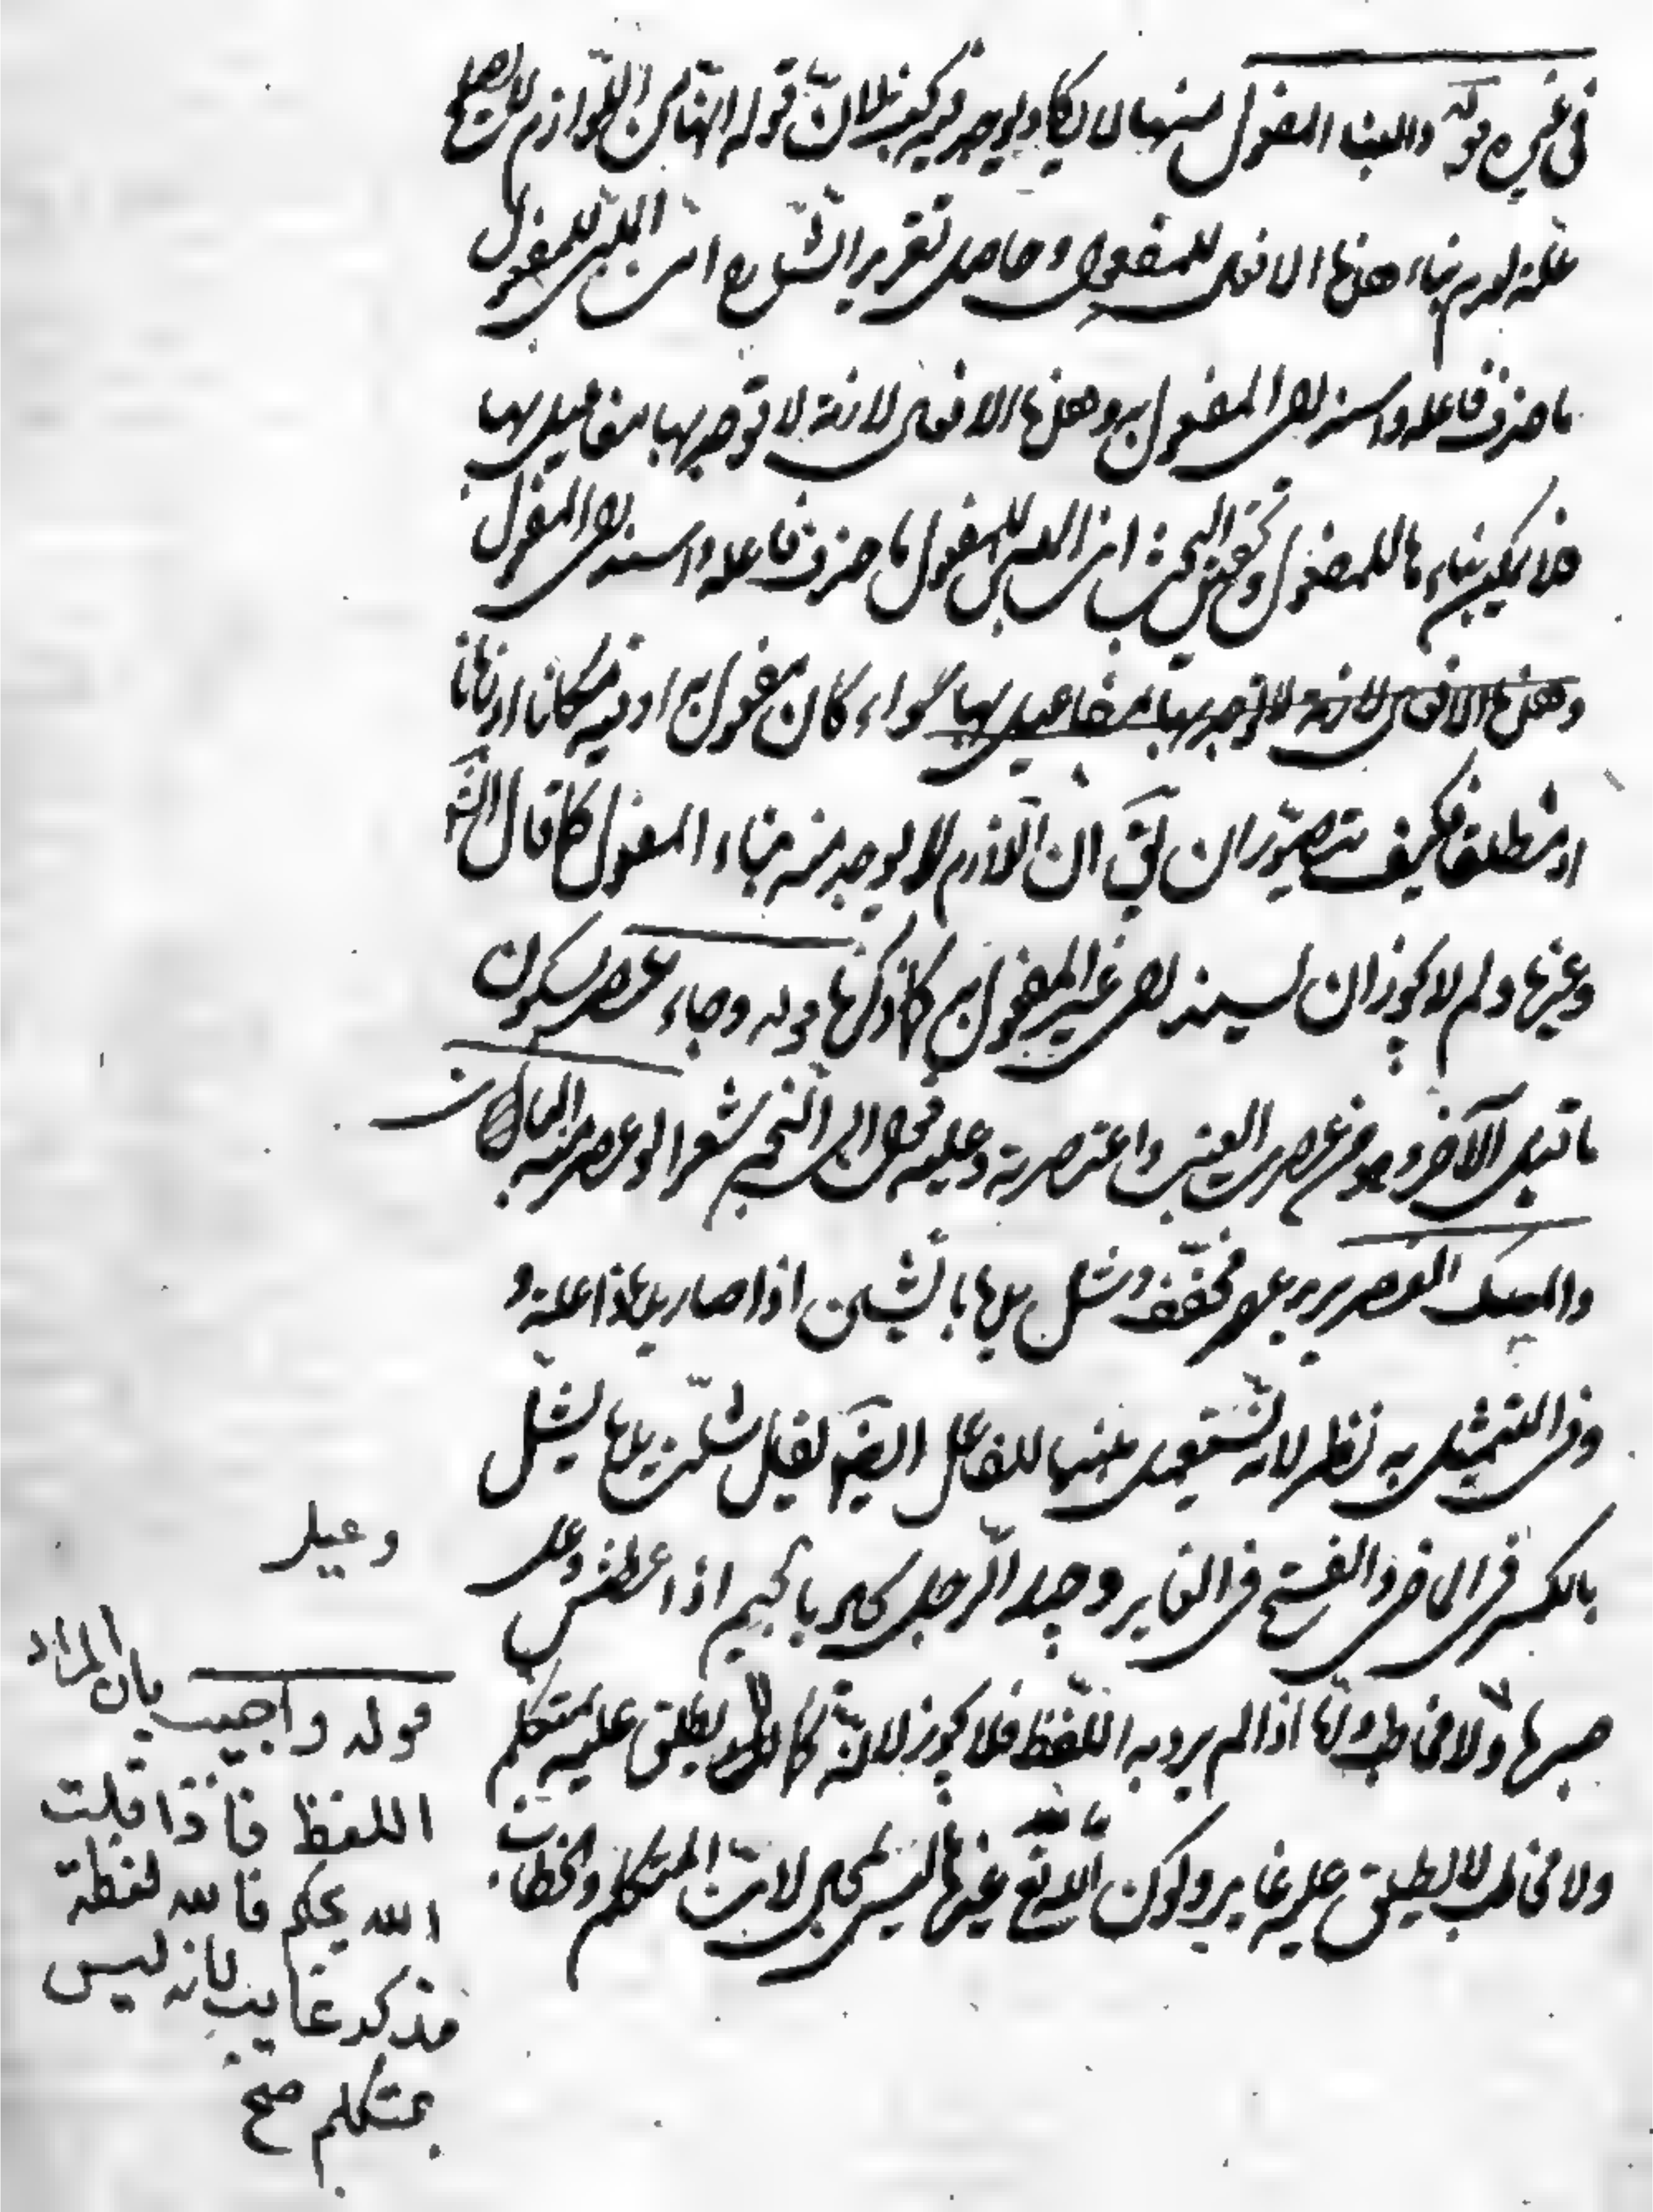 في غيره قوله والبناء للمفعول منها لا يكاد يوجد فيه بحث لان قوله انها من اللوازم لا يصلح
علة لعدم بناء هذه الافعال للمفعول وحاصل تقرير الشارح ان المبني للمفعول
ما حذف فاعله واسند الى المفعول به وهذه الافعال لازمة لا توجد بها مفاعيل بها
فلا يمكن بناءها للمفعول وتحقيق البحث ان المبني للمفعول ما حذف فاعله واسند الى المفعول
وهذه الافعال لازمة لا توجد بها مفاعيل بها سواء كان مفعول به او فيه مكانا او زمانا
او مطلقا فكيف يتصور ان يق ان اللازم لا يوجد منه بناء المفعول كما قال الش
وغيرها ولم لا يجوز ان يسند الى غير المفعول به كما ذكرنا قوله وجاء عصر بسكون
ما قبل الآخر وهو من عصرت العنب واعتصرته وعليه قول ابي النجم شعر لو عصر منه البان
والمسك انعصر يريد عصر مخفف وشل يدها بالشين اذا صار يدها ذا علة و
وفي التمثيل به نظر لانه يستعمل مبنيا للفاعل ايضا يقال شلت يدها يشل
بالكسر في الماضي والفتح في الغابر وجيد الرجل يجاد بالجيم اذا عطش وعلى
ولا مخاطب اذا لم يرد به اللفظ فلا يجوز لانه كما لا يطلق عليه متكلم
ولا مخاطب لا يطلق عليه غايب وكون الله تع غيرها ليس بمجمل لان المتكلم والخطاب
وعيل
قوله واجيب بان المراد
اللفظ فاذا قلت
الله يحكم فالله لفظة
مذكر غايب لانه ليس
بمتكلم صح